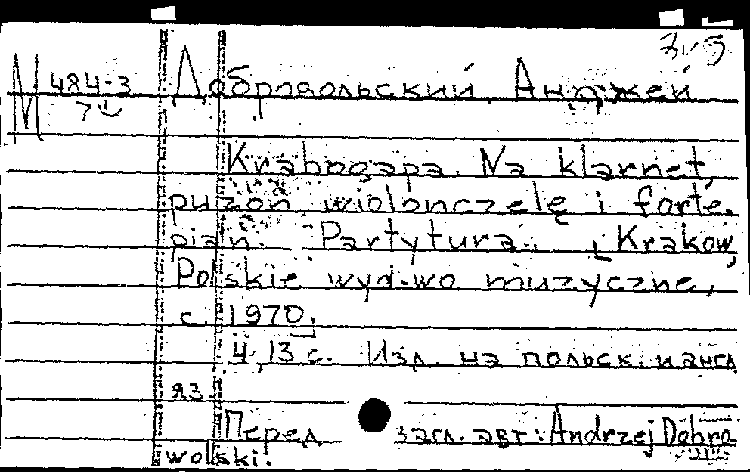 М 484-3 Добровольский, Анджей
Krabogapa. Na klarnet,
puzon, wiolonczelę i forte-
pian. Partytura. [Kraków,
Polskie wyd-wo muzyczne,
c. 1970].
4, 13 с. Изд. на польск. и англ
яз.
Перед загл. авт.: Andrzej Dobro-
wolski.